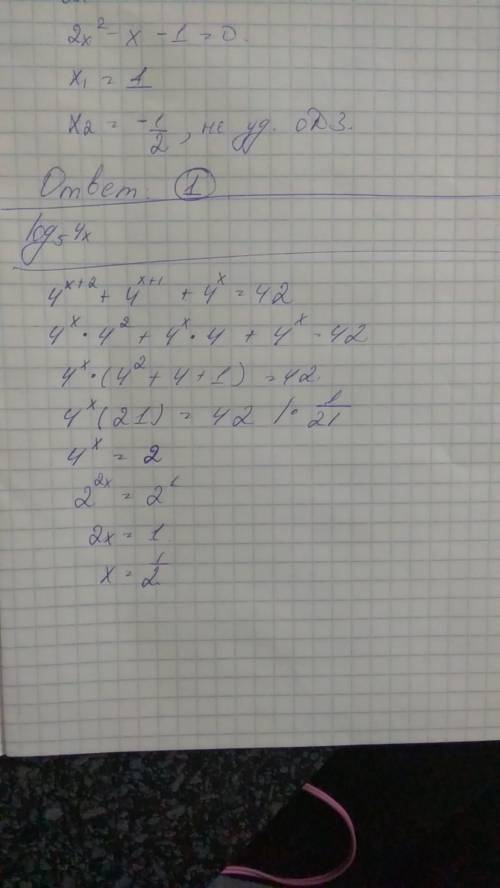 2x² - x - 1 = 0.
x₁ = 1
x₂ = -1/2, не уд. ОДЗ.
Ответ: 1
log₅ 4x
4^(x+2) + 4^(x+1) + 4^x = 42
4^x · 4² + 4^x · 4 + 4^x = 42
4^x · (4² + 4 + 1) = 42.
4^x (21) = 42 / · 1/21
4^x = 2
2^(2x) = 2¹
2x = 1
x = 1/2